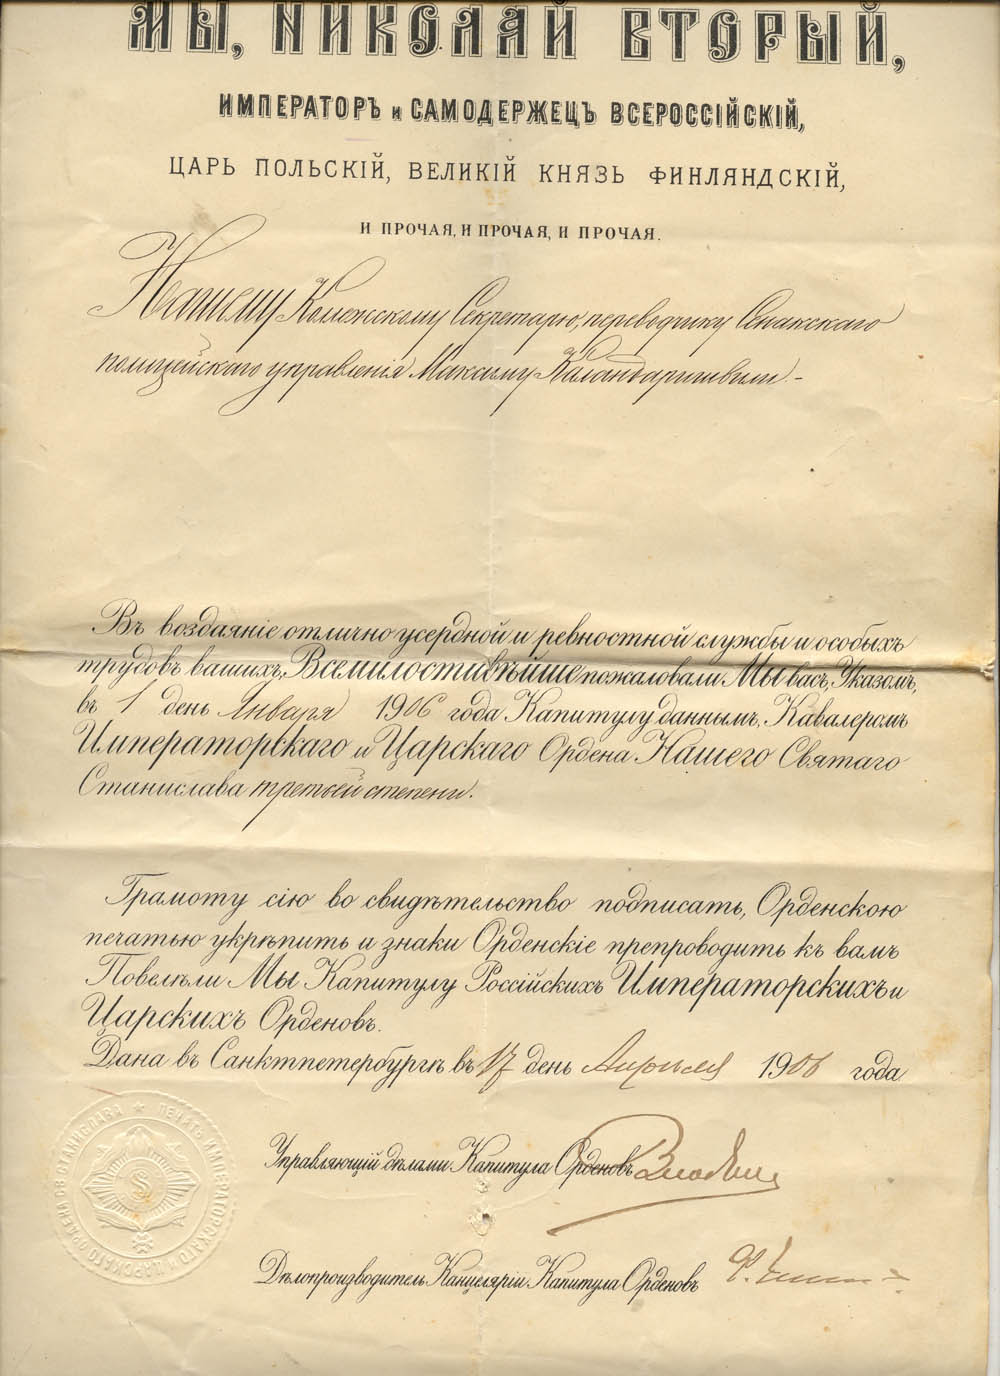 МЫ, НИКОЛАЙ ВТОРЫЙ,
ИМПЕРАТОРЪ и САМОДЕРЖЕЦЪ ВСЕРОССІЙСКІЙ,
ЦАРЬ ПОЛЬСКІЙ, ВЕЛИКІЙ КНЯЗЬ ФИНЛЯНДСКІЙ,
И ПРОЧАЯ, И ПРОЧАЯ, И ПРОЧАЯ.
Нашему Колежскому Секретарю, переводчику Сенакскаго
полицейскаго управленія Максиму Каландаришвили.-
Въ воздаяніе отлично усердной и ревностной службы и особыхъ
трудовъ вашихъ, Всемилостивѣйше пожаловали Мы васъ, Указомъ,
въ 1 день Января 1906 года Капитулу даннымъ, Кавалеромъ
Императорскаго и Царскаго Ордена Нашего Святаго
Станислава третьей степени.
Грамоту сію во свидѣтельство подписать, Орденскою
печатью укрѣпить и знаки Орденскіе препроводить къ вамъ
Повелѣли Мы Капитулу Россійскихъ Императорскихъ и
Царскихъ Орденовъ.
Дана въ Санктпетербургѣ въ 17 день Апрѣля 1906 года
Управляющій дѣлами Капитула Орденовъ
Дѣлопроизводитель Канцеляріи Капитула Орденовъ
ПЕЧАТЬ ИМПЕРАТОРСКАГО И ЦАРСКАГО ОРДЕНА СВ. СТАНИСЛАВА